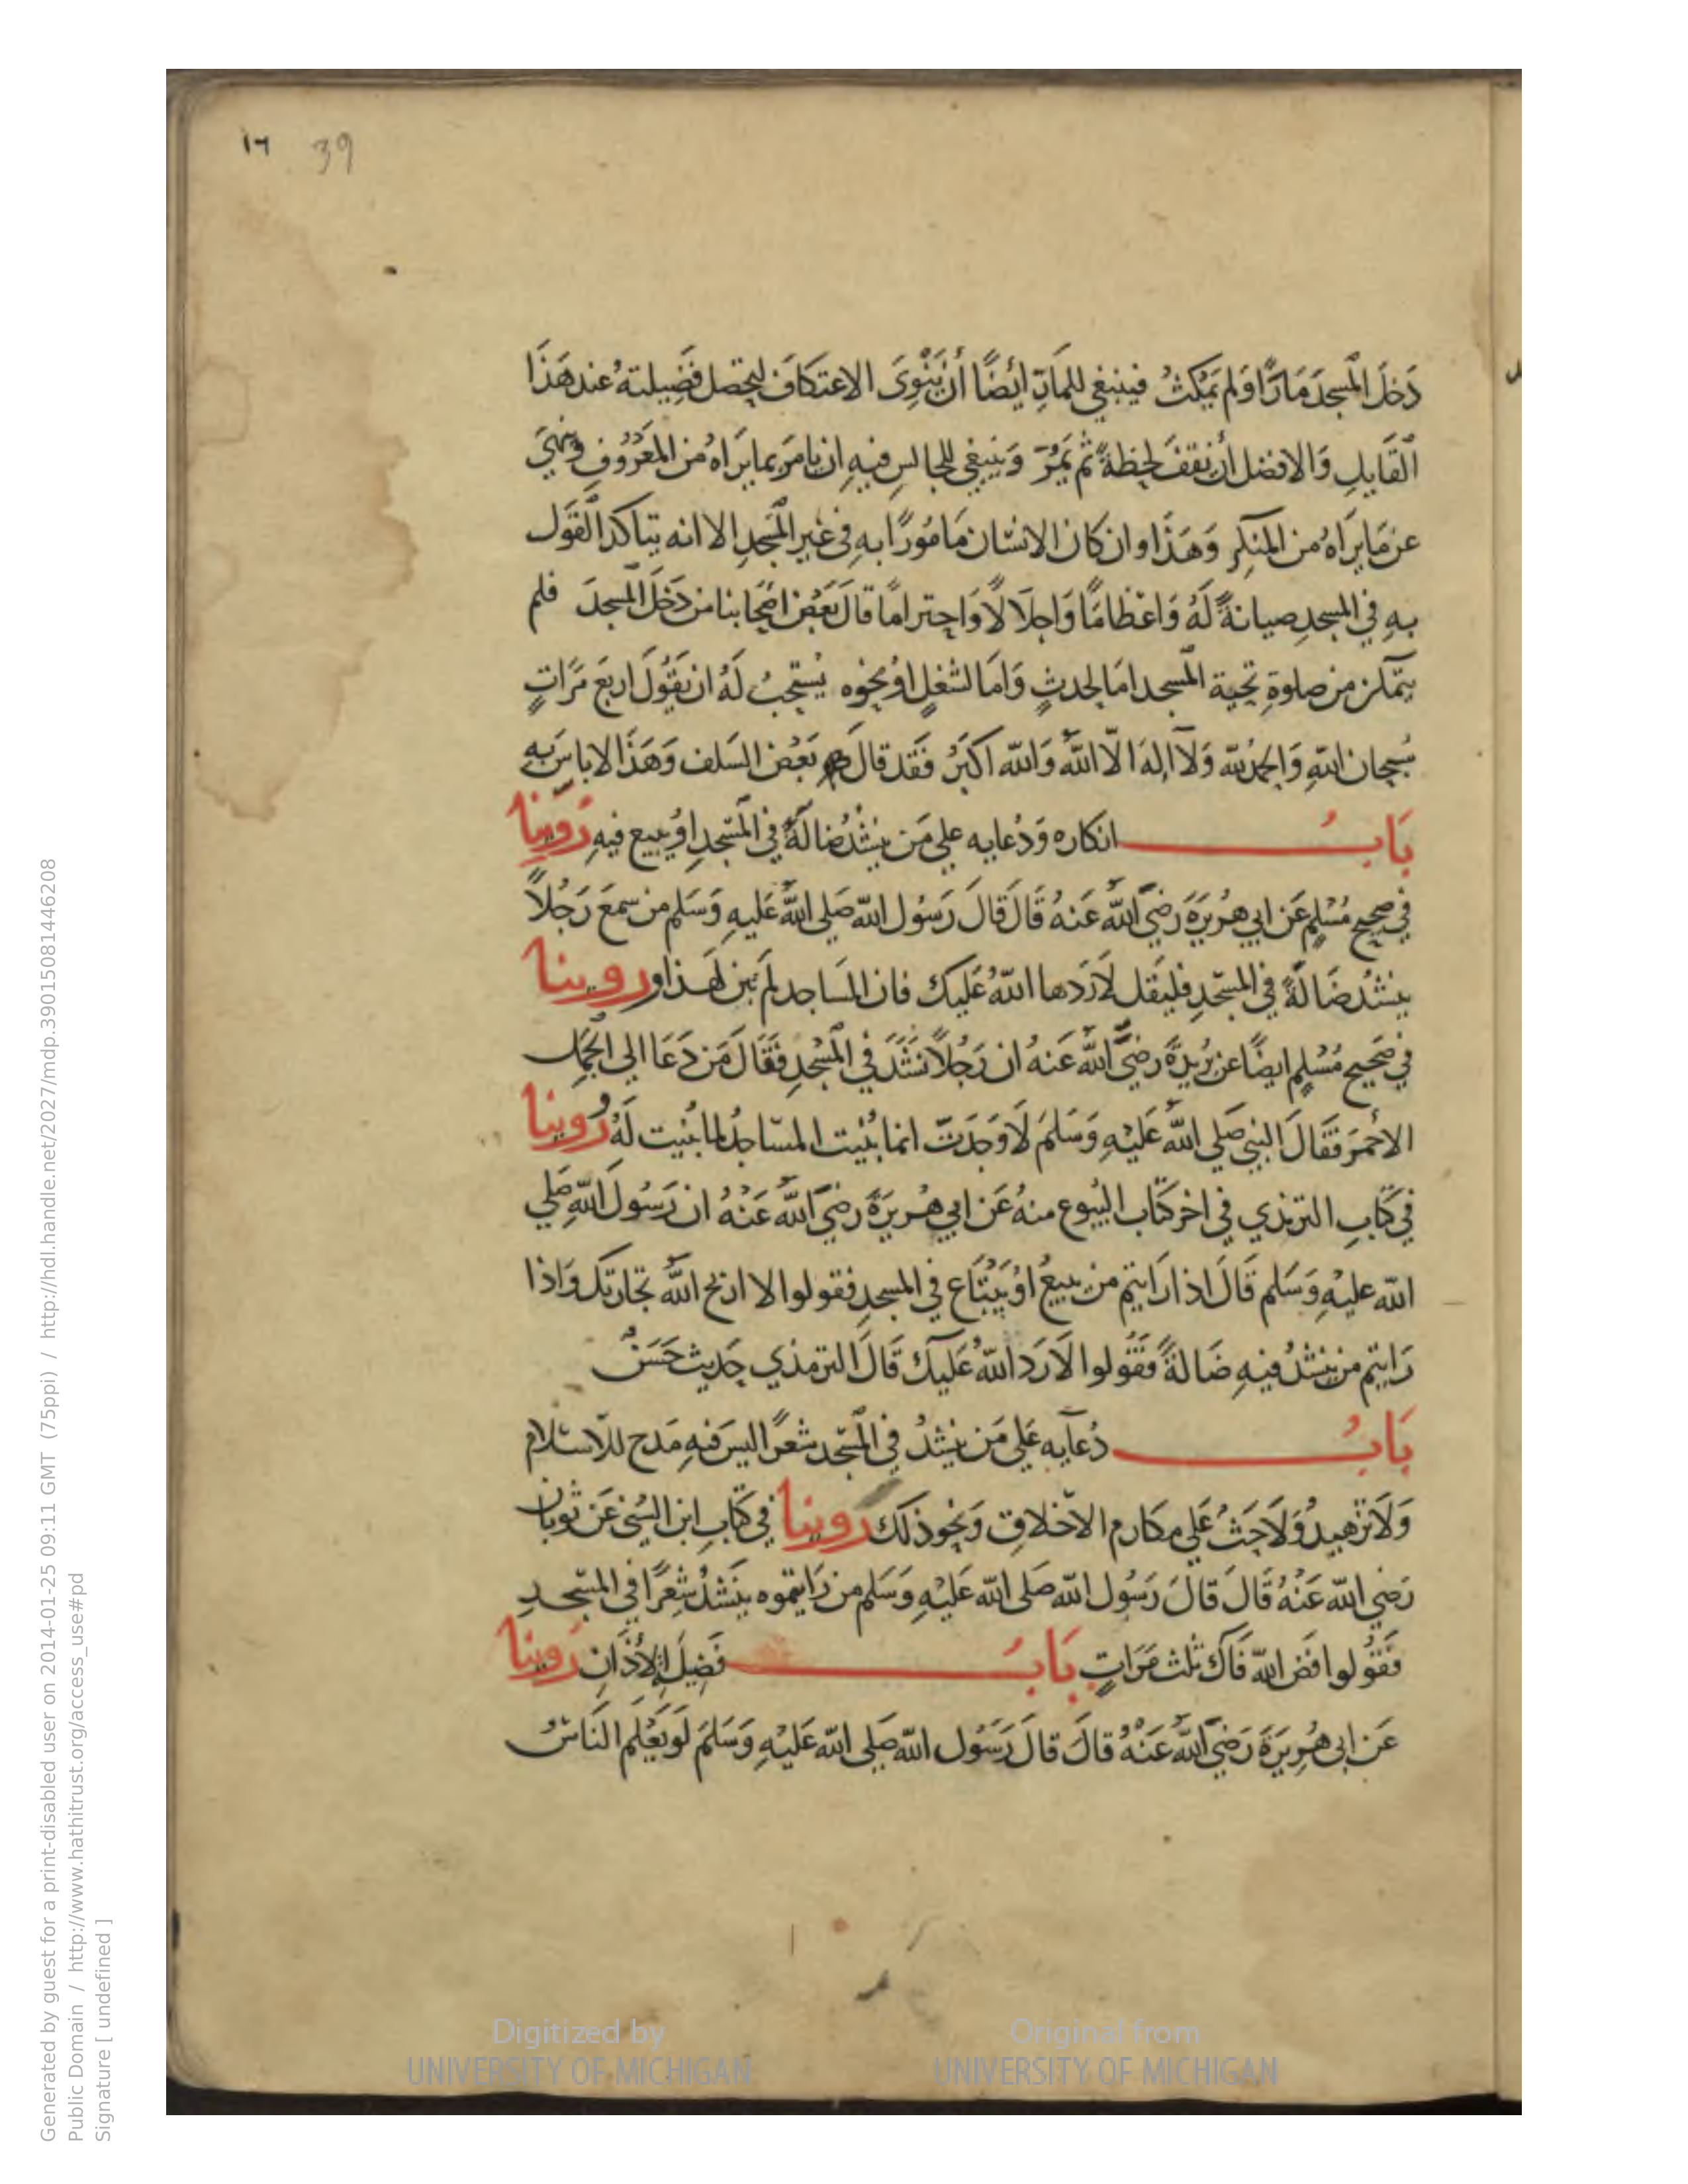 ١٦ 39
دَخَلَ المسجدَ مَارًّا وَلم يَمكثْ فينبغي للمَارّ ايْضًا أن يَنْوِىَ الاعتكافَ لتحصل فَضِيلته عند هَذَا
القَايلِ وَالافضل أن نقفَ لحظةً ثم يَمُرّ وَينبغي للجالسِ فيهِ ان يامرَ بما يرَاهُ من المعْرُوفِ وَينهيَ
عن مَا يرَاهُ من المنكرِ وَهَذَا وان كان الانسَان مَامُورًا بهِ في غير المسَجدِ الا انه يتاكد القَول
بهِ في المسجدِ صيانةً لَهُ وَاعْظامًا وَاجلَالًا وَاحتراماً قالَ بَعْض اصْحَابنا من دَخَلَ المسجدَ فلم
يتمكن من صلوةِ تحية المسجد امَا لحدثٍ وَامَا لشغلٍ اوْ نحوه يُستحبُ لَهُ ان يَقُولَ اربَعَ مَرَّاتٍ
سُبحان اللهِ وَالحمدُ للهِ وَلَا الهَ الَّا اللهُ وَالله اكبَرُ فَقَد قالَ بَعْض السَلف وَهَذَا لا باسَ بهِ
بَابُ انكاره وَدُعايه علي مَن ينشُدُ ضَالةً في المسَجدِ اوْ يبيع فيهِ رَوَينا
في صحيح مُسْلِم عَن ابي هُرَيرَةَ رَضيَ اللهُ عَنهُ قَالَ قَالَ رَسُول الله صَلى اللهُ عَليهِ وَسَلم من سمعَ رَجُلاً
ينشُدُ ضَالةً في المسجدِ فليقل لَا رَدها اللهُ عَليك فان المسَاجد لم تبن لهَذا وروينا
في صَحيح مُسْلمِ ايضًا عن بُريدَةَ رضيَ اللهُ عَنهُ ان رَجُلاً نشَدَ في المسْجدِ فقَالَ مَن دَعَا الي الجمَل
الاحْمَرَ فَقَالَ النبي صَلي اللهُ عَليْهِ وَسَلمَ لَا وَجَدتَ انما بُنيت المسَاجدُ لما بُنيت لَهُ رُوينا
في كتَابِ الترمذي في اخر كتَاب البُيوع منهُ عَن ابي هُريرَةَ رضيَ اللهُ عَنْهُ ان رَسُول اللهِ صَلي
الله عليْهِ وَسَلم قَالَ اذا رَايتم من يبيعُ اوْ يَبْتَاع في المسجدِ فقولوا لا اربح اللهُ تجارتك وَاذا
رَايتم من ينشُدُ فيهِ ضَالةً فَقُولوا لَا رَد اللهُ عَليك قَالَ الترمذي حَديث حَسَنٌ
بَابُ دُعَآيه عَلي مَن ينشدُ في المسَجد شعرًا ليسَ فيهِ مَدح للاسْلام
وَلَا تزهيدُ وَلَا حَثُ عَلي مكارم الاخلاق وَنحو ذلك روينا في كتَاب ابن السُني عَن ثوبان
رَضي الله عَنْهُ قَالَ قالَ رَسُول الله صَلى الله عَليْهِ وَسَلم من رَايتموه ينَشدُ شِعْرًا في المسَجدِ
فَقُولوا فض الله فَاكَ ثلث مَرَاتٍ بَابُ فَضيلة الأذان رَوينا
عَن ابى هُرِيرَةَ رَضيَ اللهُ عَنْهُ قالَ قالَ رَسُول الله صَلي الله عَليْهِ وَسَلمَ لَو يَعْلَم النَاسُ
Digitized by
UNIVERSITY OF MICHIGAN
Original from
UNIVERSITY OF MICHIGAN
Generated by guest for a print-disabled user on 2014-01-25 09:11 GMT (75ppi) / http://hdl.handle.net/2027/mdp.39015081446208
Public Domain / http://www.hathitrust.org/access_use#pd
Signature [ undefined ]